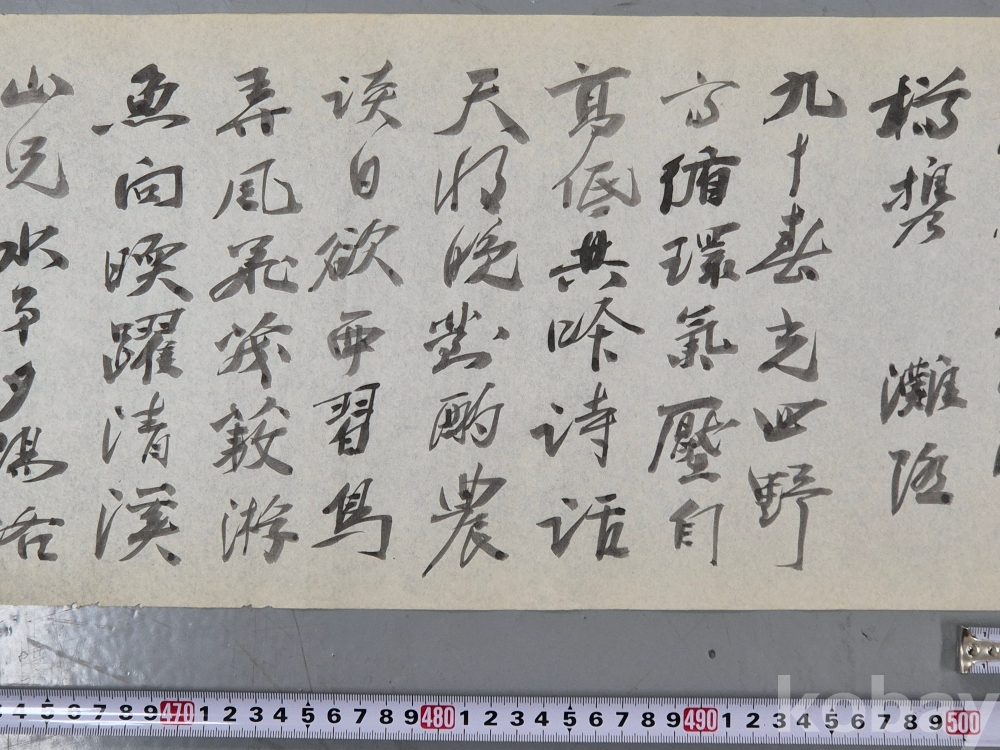 九十春光四野
高循環氣壓自
高低典吟詩話
天將晚對酌農
談日欲西習鳥
弄風飛幾蔌游
魚向暎躍清溪
山兄水弟夕陽
3 4 5 6 7 8 9 470 1 2 3 4 5 6 7 8 9 480 1 2 3 4 5 6 7 8 9 490 1 2 3 4 5 6 7 8 9 500
kobay